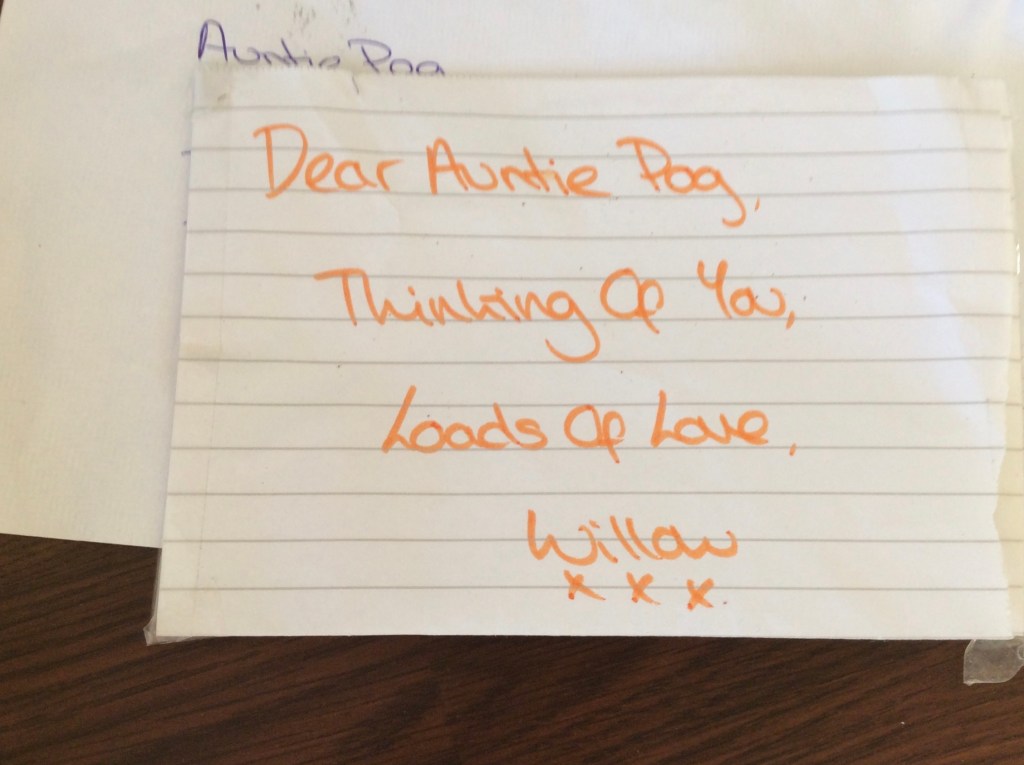 Auntie Pog
Dear Auntie Pog,
Thinking Of You,
Loads Of Love,
Willow
x x x